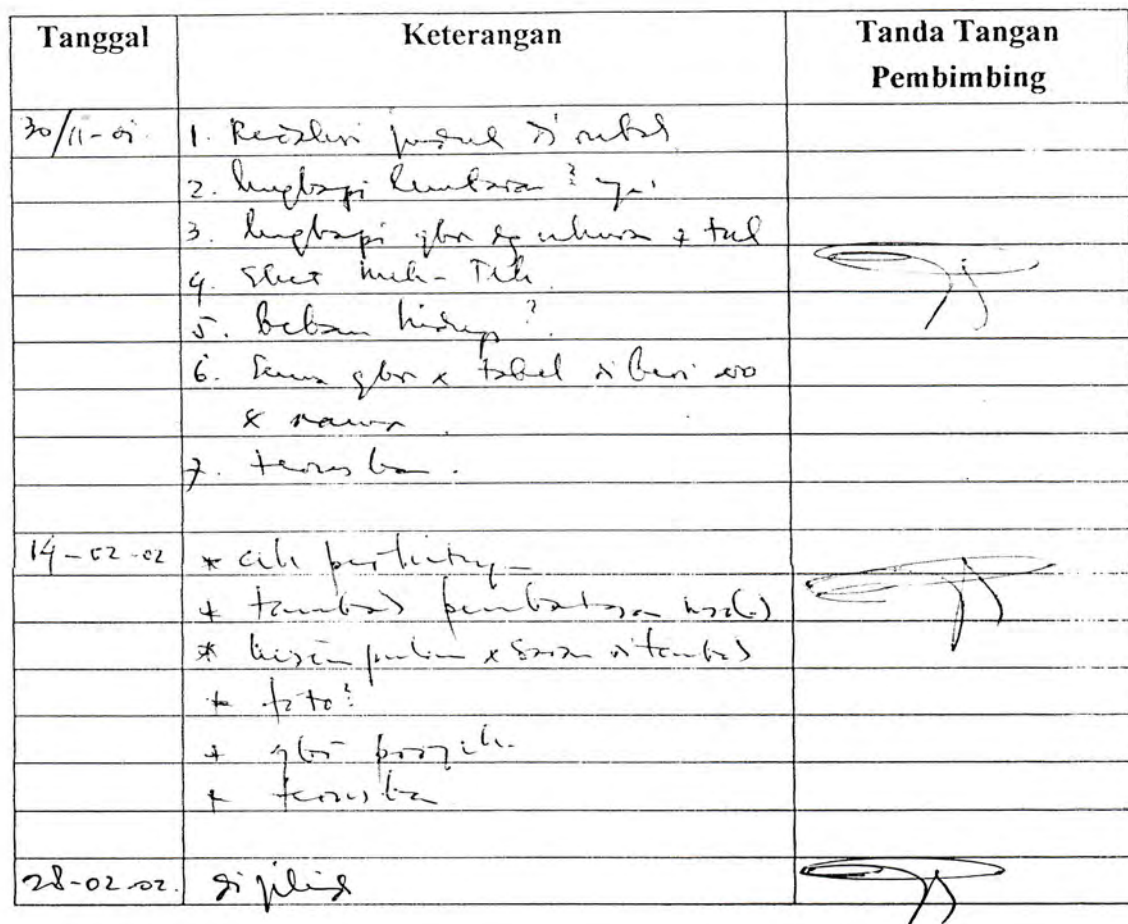 Tanggal
Keterangan
Tanda Tangan
Pembimbing
30/11-01.
1. judul di rubah
2. lengkapi
3. lengkapi gbr dg ukuran & tul
4. Mek-Tek.
5. beban hidup?
6. Semua gbr & tabel di beri no
& nama.
7. teruskan.
14-02-02
* cek perhitung
* tambah pembahasan
* kesimpulan & Saran ditambah
* foto?
* gbr proyek.
* teruskan
28-02-02.
di jilid